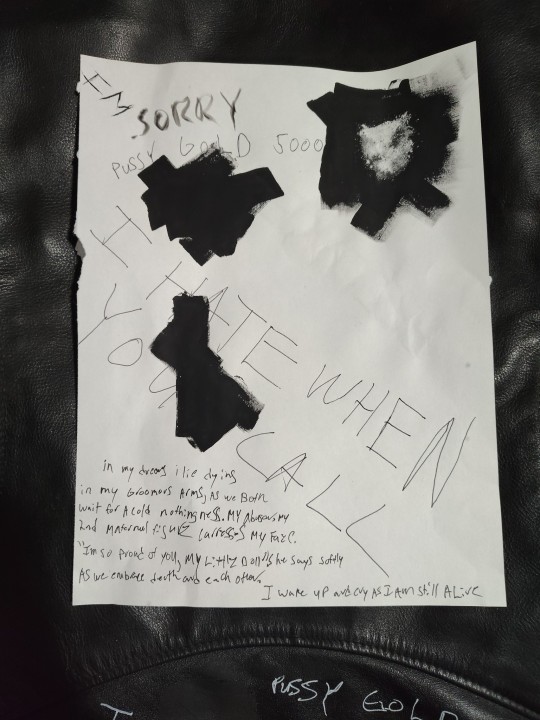 I'M
SORRY
PUSSY GOLD 5000
I HATE WHEN
YOU CALL
in my dreams i lie dying
in my Groomors Arms, As we Both
wait for A cold nothingness. MY Abuser, my
2nd maternal figure carresses MY Face.
"Im so proud of you, MY LittlE Doll" she says softly
As we embrace death and each other.
I wake up and cry As I Am still ALive
PUSSY GOLD
I